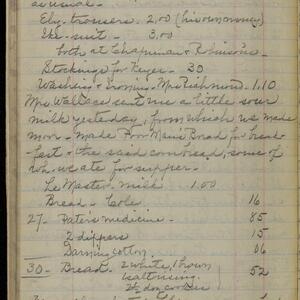 as usual -
Ely - trousers - 2.00 (his own money)
Eke - suit - 3.00
both at Chapman & Robinson's
Stockings for Keyer - 30
Washing & Ironing - Mrs. Richmond - 1.10
Mrs. Wallace sent me a little sour
milk yesterday, from which we made
more - made Poor Man's Bread for break-
fast & the said cornbread, some of
wh. we ate for supper -
Le Master - milk 1.00
Bread - Cole 16
27 - Pater's medicine - 85
2 dippers 15
Darning cotton 06
30 - Bread 2 white, 1 brown 52
1 salt rising
2½ doz